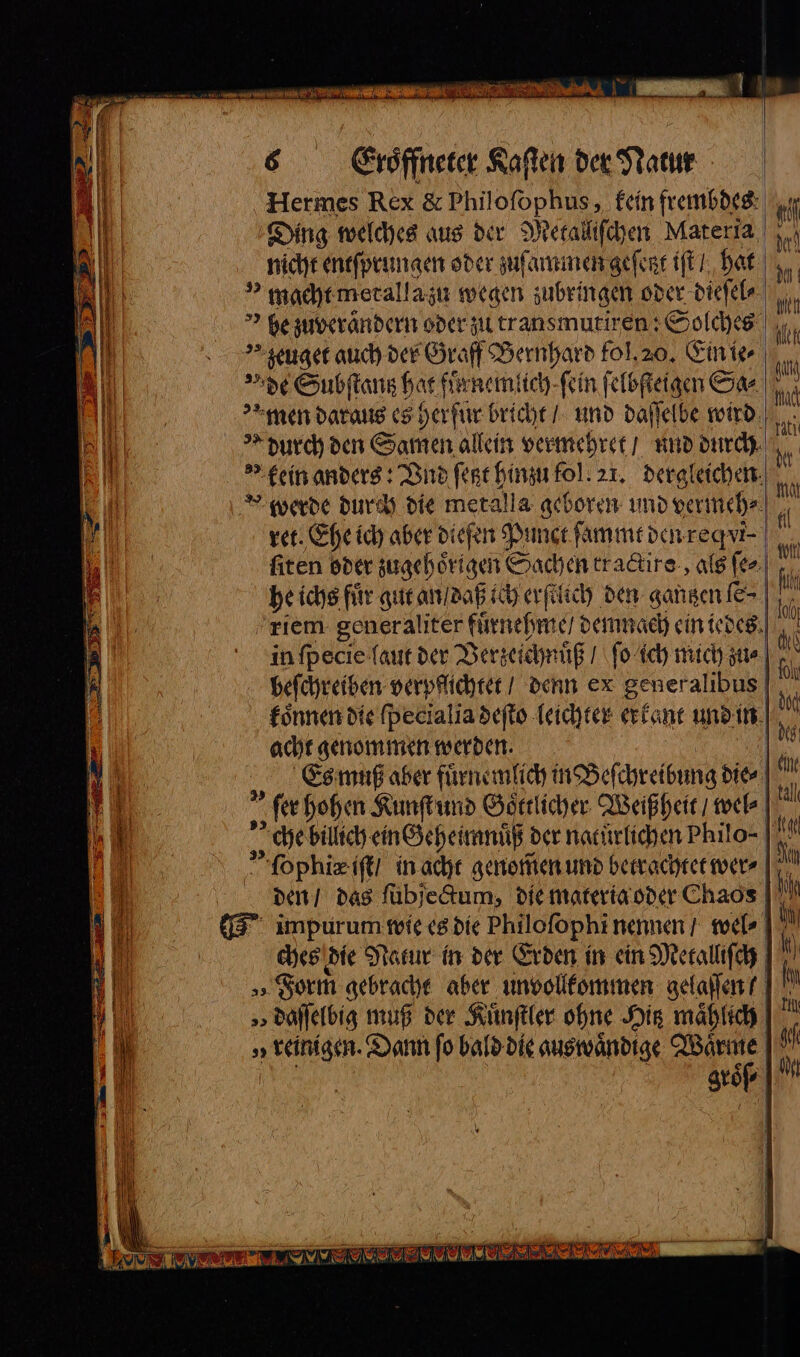 6 Eröffneter Kaſten der Natur
Hermes Rex & Philoſophus, kein frembdes
Ding welches aus der Metalliſchen Materia
nicht entſprungen oder zuſammen geſetzt iſt / hat
” macht metalla zu wegen zubringen oder dieſel⸗
” be zuverändern oder zu transmutiren: Solches
” zeuget auch der Graff Bernhard fol. 20. Ein ie⸗
” de Subſtantz hat fürnemlich ſein ſelbſteigen Sa⸗
” men daraus es herfür bricht / und daſſelbe wird
” durch den Samen allein vermehret / und durch
” kein anders: Vnd ſetzt hinzu fol. 21. dergleichen
” werde durch die metalla geboren und vermeh⸗
ret. Ehe ich aber dieſen Punct ſammt den reqvi-
ſiten oder zugehörigen Sachen tractire, als ſe⸗
he ichs für gut an / daß ich erſtlich den gantzen ſe-
riem generaliter fürnehme / demnach ein iedes
in ſpecie laut der Verzeichnüß / ſo ich mich zu⸗
beſchreiben verpflichtet / denn ex generalibus
können die ſpecialia deſto leichter erkant und in
acht genommen werden.
Es muß aber fürnemlich in Beſchreibung die⸗
” ſer hohen Kunſt und Göttlicher Weißheit / wel⸗
” che billich ein Geheimnüß der natürlichen Philo-
” ſophiæ iſt / in acht genom̃en und betrachtet wer⸗
den / das ſubjectum, die materia oder Chaos
☞ impurum wie es die Philoſophi nennen / wel⸗
ches die Natur in der Erden in ein Metalliſch
„ Form gebracht aber unvollkommen gelaſſen /
„ daſſelbig muß der Künſtler ohne Hitz mählich
„ reinigen. Dann ſo bald die auswändige Wärme
gröſ⸗